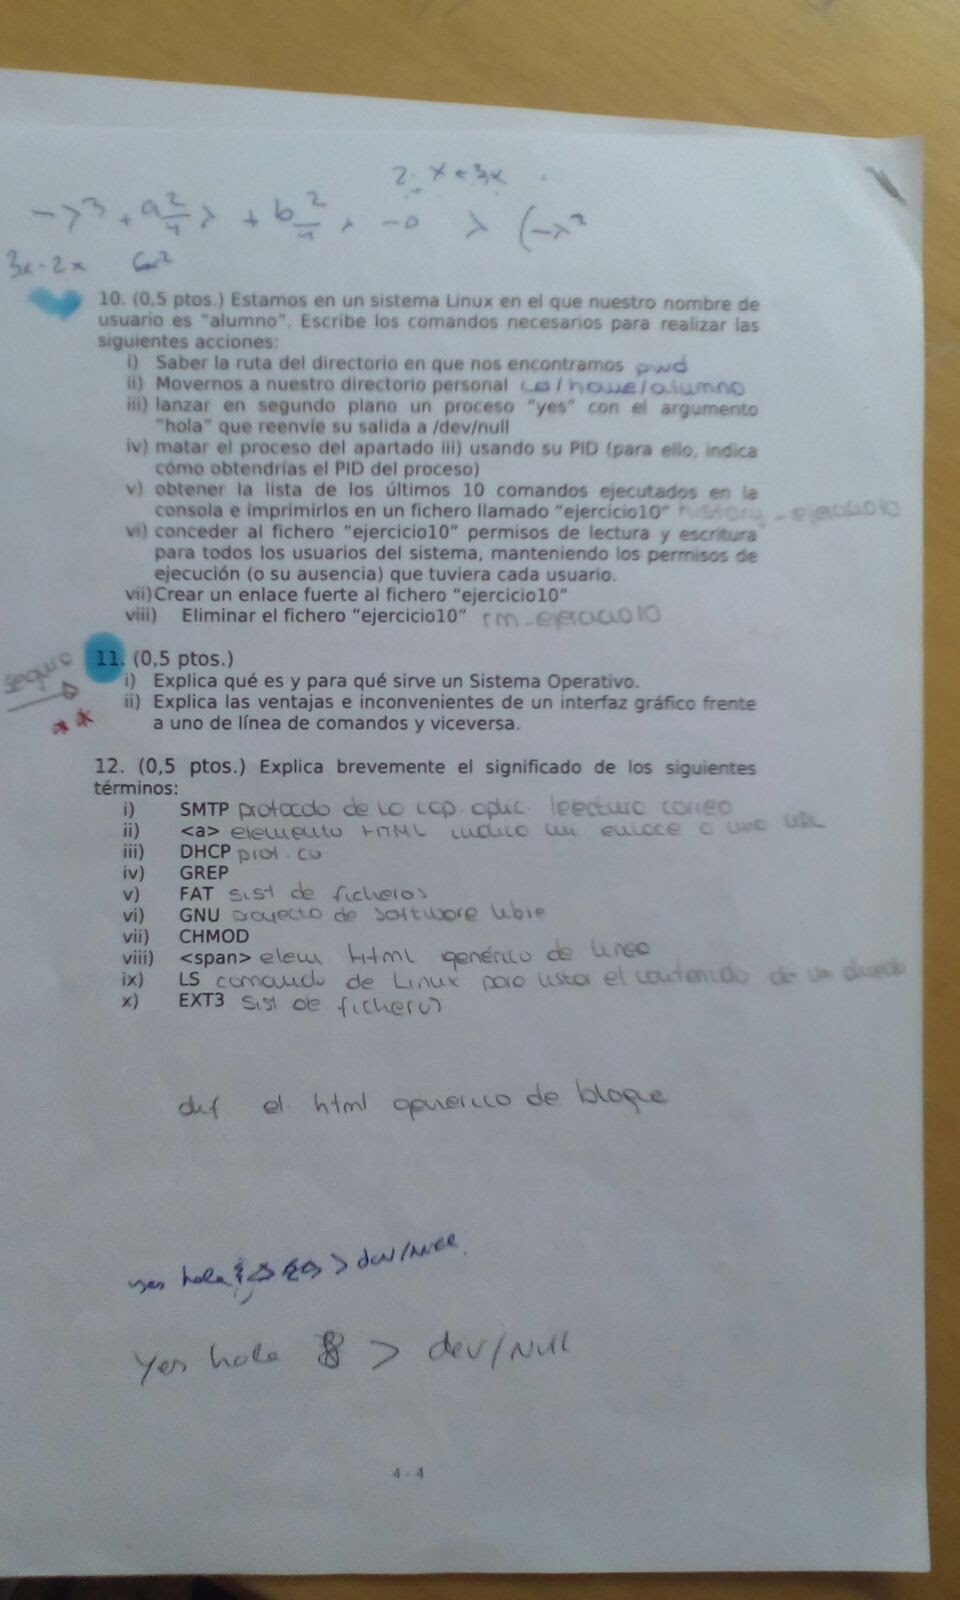 2. x = 3x
-λ³ + a²/4 λ + b²/4 λ -0 λ (-λ²
3x-2x 6x²
10. (0,5 ptos.) Estamos en un sistema Linux en el que nuestro nombre de
usuario es "alumno". Escribe los comandos necesarios para realizar las
siguientes acciones:
i) Saber la ruta del directorio en que nos encontramos pwd
ii) Movernos a nuestro directorio personal cd/home/alumno
iii) lanzar en segundo plano un proceso "yes" con el argumento
"hola" que reenvíe su salida a /dev/null
iv) matar el proceso del apartado iii) usando su PID (para ello, indica
cómo obtendrías el PID del proceso)
v) obtener la lista de los últimos 10 comandos ejecutados en la
consola e imprimirlos en un fichero llamado "ejercicio10" history - ejercicio10
vi) conceder al fichero "ejercicio10" permisos de lectura y escritura
para todos los usuarios del sistema, manteniendo los permisos de
ejecución (o su ausencia) que tuviera cada usuario.
vii) Crear un enlace fuerte al fichero "ejercicio10"
viii) Eliminar el fichero "ejercicio10" rm - ejercicio10
seguro
11. (0,5 ptos.)
i) Explica qué es y para qué sirve un Sistema Operativo.
ii) Explica las ventajas e inconvenientes de un interfaz gráfico frente
a uno de línea de comandos y viceversa.
12. (0,5 ptos.) Explica brevemente el significado de los siguientes
términos:
i) SMTP protocolo de la cap. aplic. correo
ii) <a> elemento HTML indica un enlace a una URL
iii) DHCP prot. cu
iv) GREP
v) FAT sist de ficheros
vi) GNU proyecto de software libre
vii) CHMOD
viii) <span> elem Html genérico de linea
ix) LS comando de Linux para listar el contenido de un
x) EXT3 Sist de ficheros
el html generico de bloque
yes hola > dev/null
yes hola & > dev/null
4 - 4